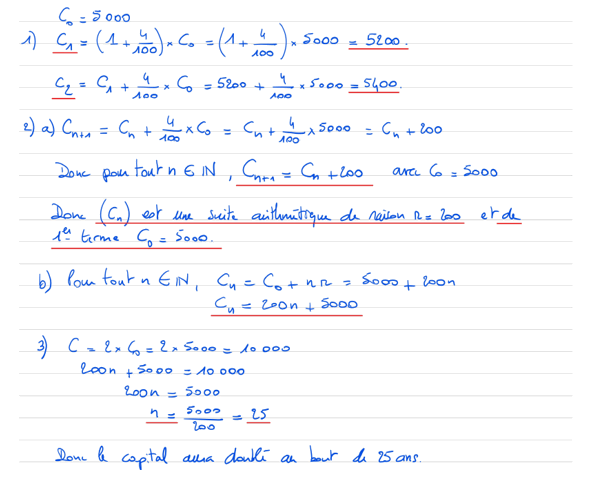 C₀ = 5000
1) C₁ = (1 + 4/100) × C₀ = (1 + 4/100) × 5000 = 5200.
C₂ = C₁ + 4/100 × C₀ = 5200 + 4/100 × 5000 = 5400.
2) a) Cₙ₊₁ = Cₙ + 4/100 × C₀ = Cₙ + 4/100 × 5000 = Cₙ + 200
Donc pour tout n ∈ ℕ, Cₙ₊₁ = Cₙ + 200 avec C₀ = 5000
Donc (Cₙ) est une suite arithmétique de raison r = 200 et de
1er terme C₀ = 5000.
b) Pour tout n ∈ ℕ, Cₙ = C₀ + nr = 5000 + 200n
Cₙ = 200n + 5000
3) C = 2 × C₀ = 2 × 5000 = 10 000
200n + 5000 = 10 000
200n = 5000
n = 5000/200 = 25
Donc le capital aura doublé au bout de 25 ans.